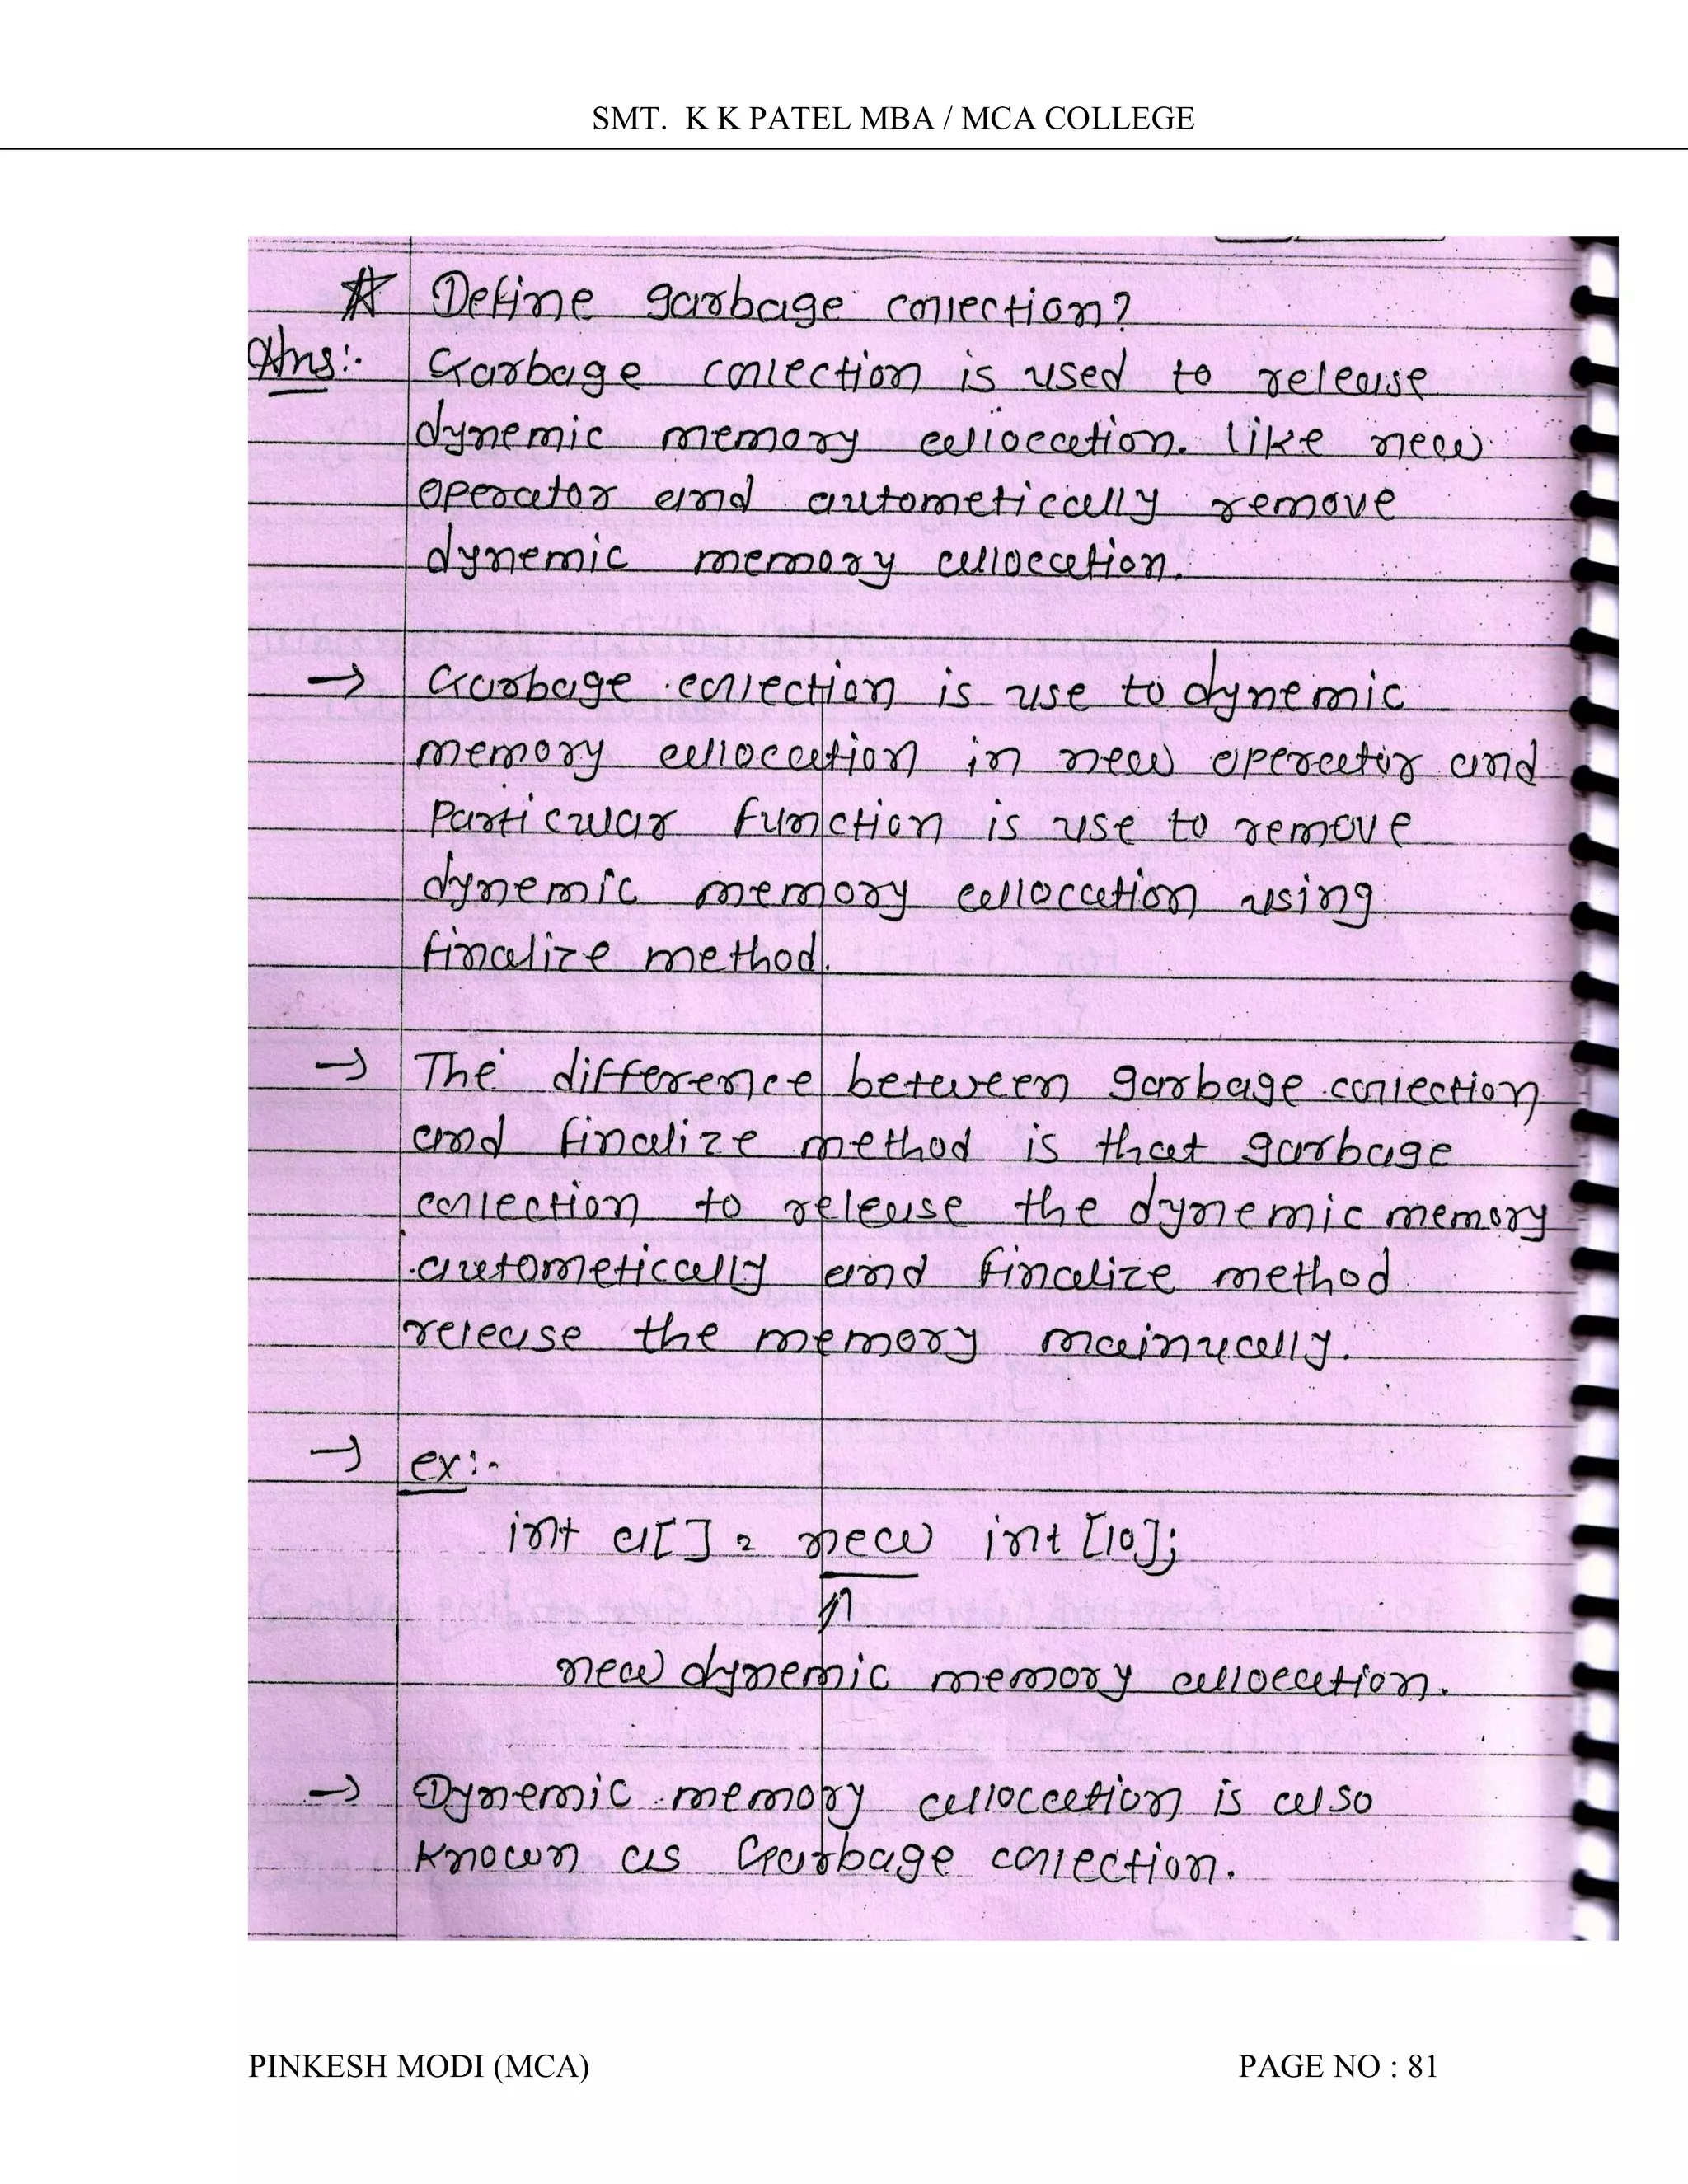 SMT. K K PATEL MBA / MCA COLLEGE
☆ Define garbage collection?
Ans:- Garbage collection is used to release
dynemic memory allocation. like new
operator and autometically remove
dynemic memory allocation.
→ Garbage collection is use to dynemic
memory allocation in new operator and
Particular function is use to remove
dynemic memory allocation using
finalize method.
→ The difference between garbage collection
and finalize method is that garbage
collection to release the dynemic memory
autometically and finalize method
release the memory mainucally.
→ ex:-
int a[] = new int [10];
↑
new dynemic memory allocation.
→ Dynemic memory allocation is also
known as Garbage collection.
PINKESH MODI (MCA) PAGE NO : 81